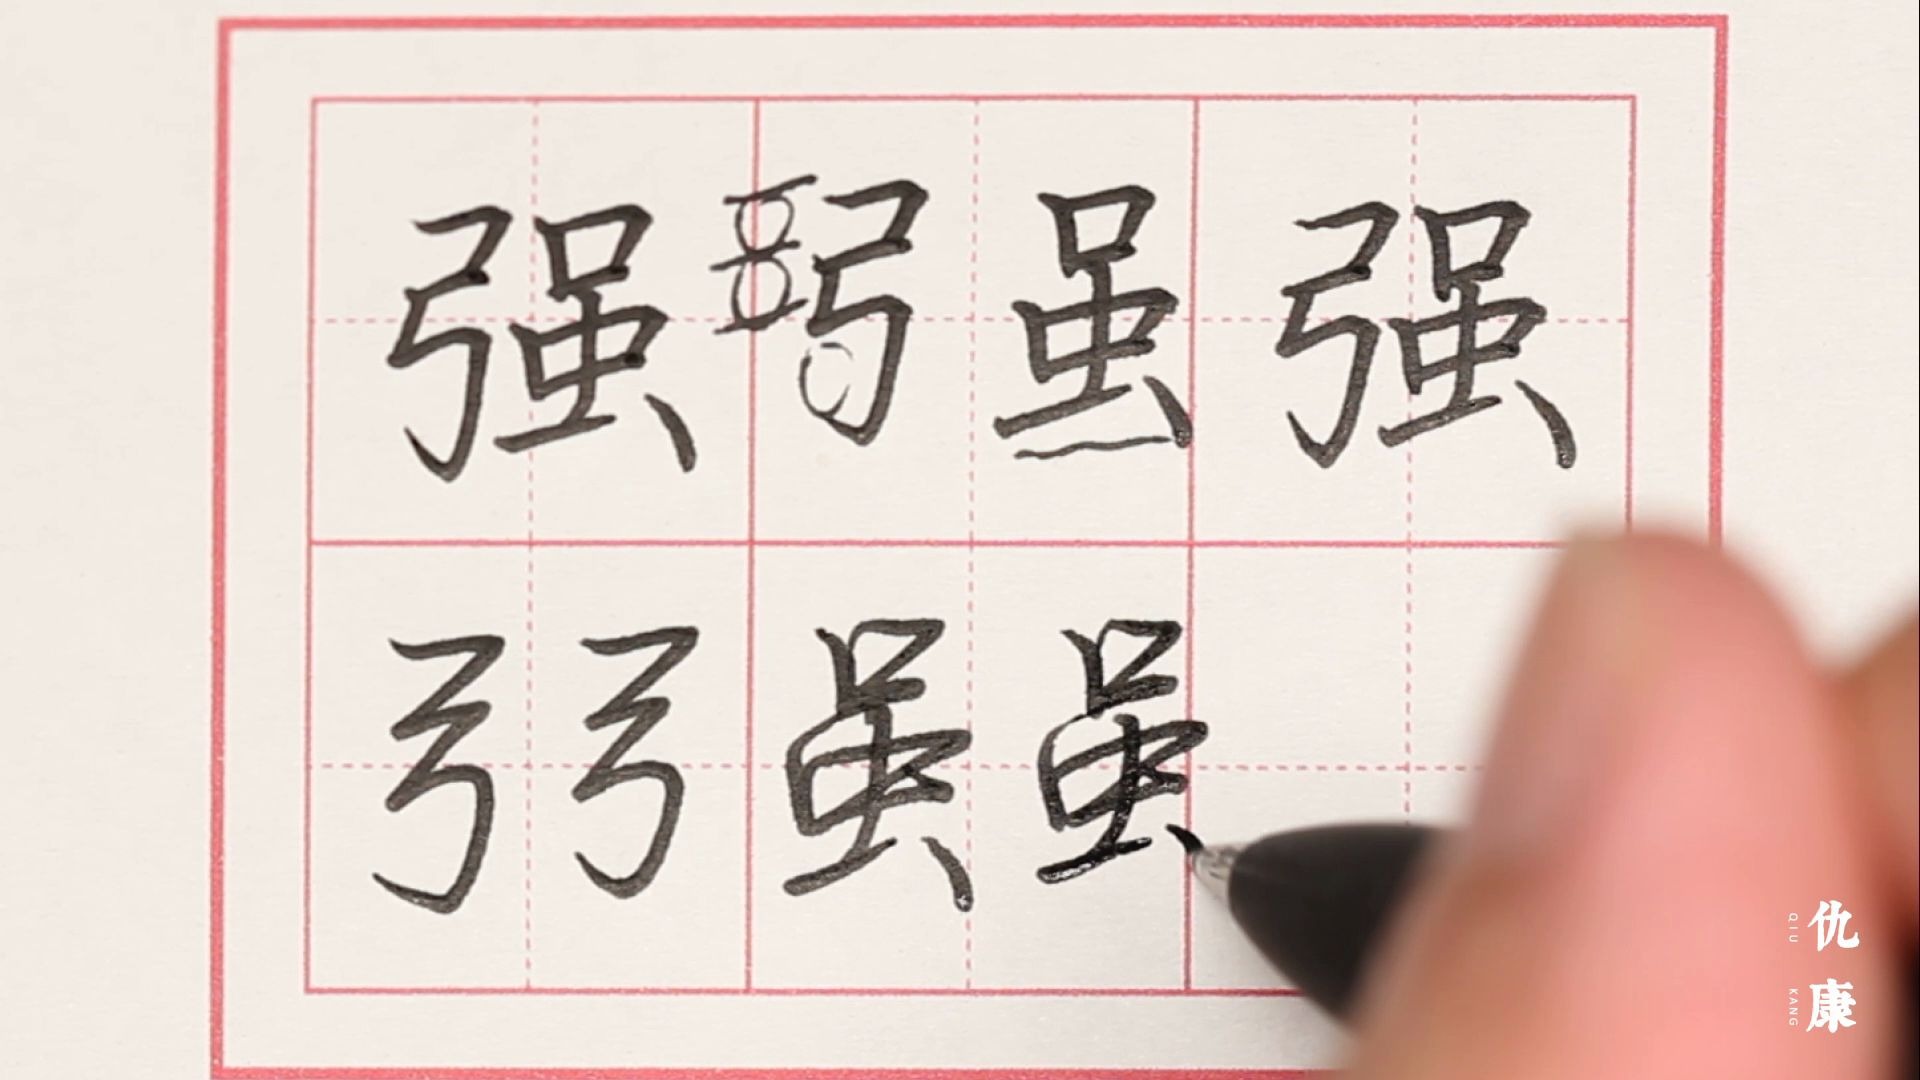 强 弓 虽 强
弓 弓 虽 虽
仇康
QIU KANG